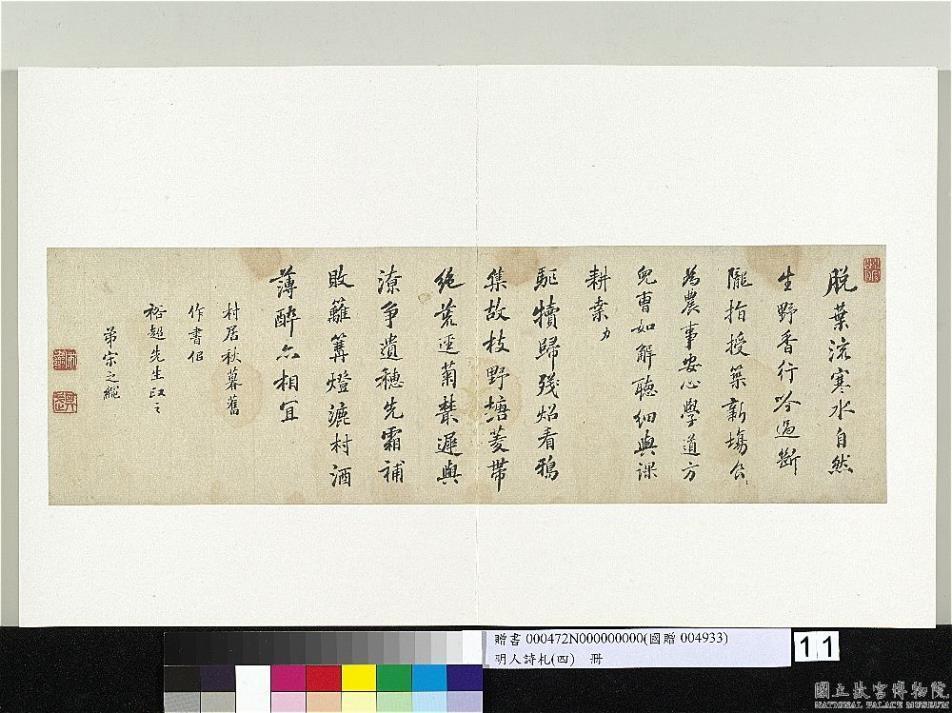 脫葉流寒水自然
生野香行吟過斷
隴指授築新場合
為農事安心學道方
兒曹如解聽細與課
耕桑
驅犢歸殘炤看鴉
集故枝野塘菱帶
絕荒逕菊叢遲與
潦爭遺穗先霜補
敗籬篝燈漉村酒
薄醉亦相宜
村居秋暮舊
作書似
裕超先生政之
弟宗之繩
贈書 000472N000000000(國贈 004933)
明人詩札(四) 冊
11
國立故宮博物院
NATIONAL PALACE MUSEUM